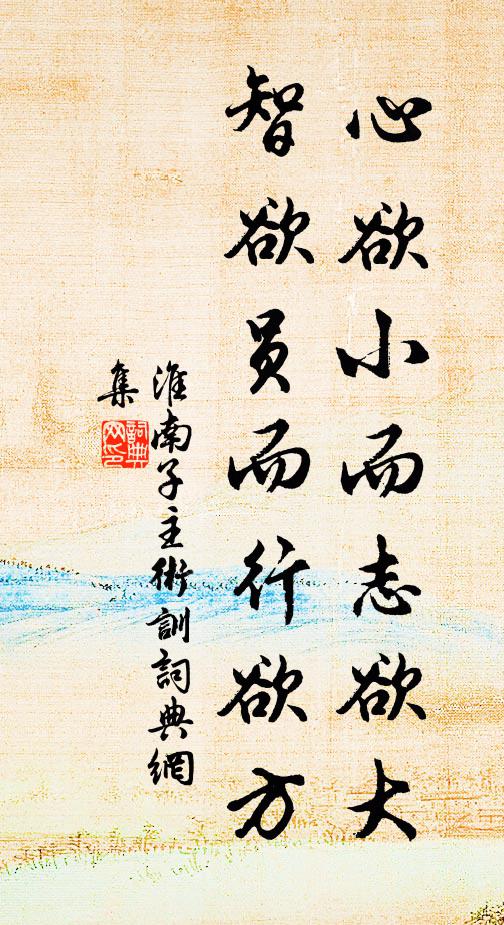 心欲小而志欲大
智欲員而行欲方
淮南子主術訓詞典網
集
詞典網印